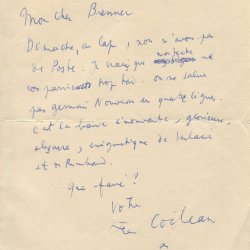 Mon cher Brenner
Dimanche, au Cap, nous n'avons pas
de Poste. Je crains que
vous parviennes trop tard. On ne salue
pas Germain Nouveau en quatre lignes.
C'est la bande innovante, glorieuse,
obscure, énigmatique de Verlaine
et de Rimbaud.
Que faire ?
Votre
Jean Cocteau